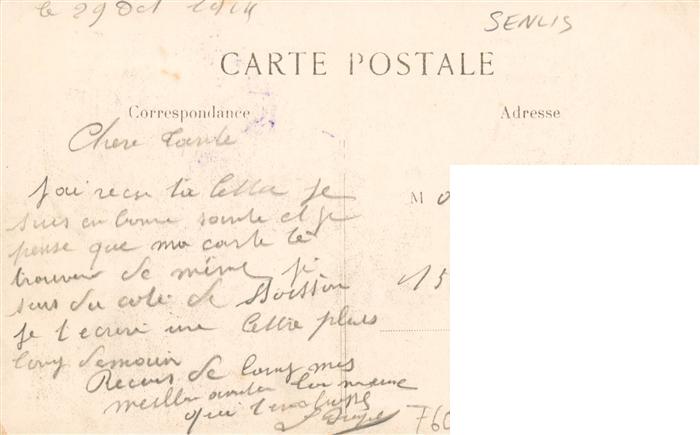 le 29 Oct 1914
SENLIS
CARTE POSTALE
Correspondance
Adresse
Chere tante
J'ai recu ta lettre je
suis en bonne sante et je
pense que ma carte te
trouvera de même je
suis du coté de Soisson
je t'ecrirai une lettre plus
long demain
Recois de loing mes
meilleur
qui t'embrasse
M
15
760